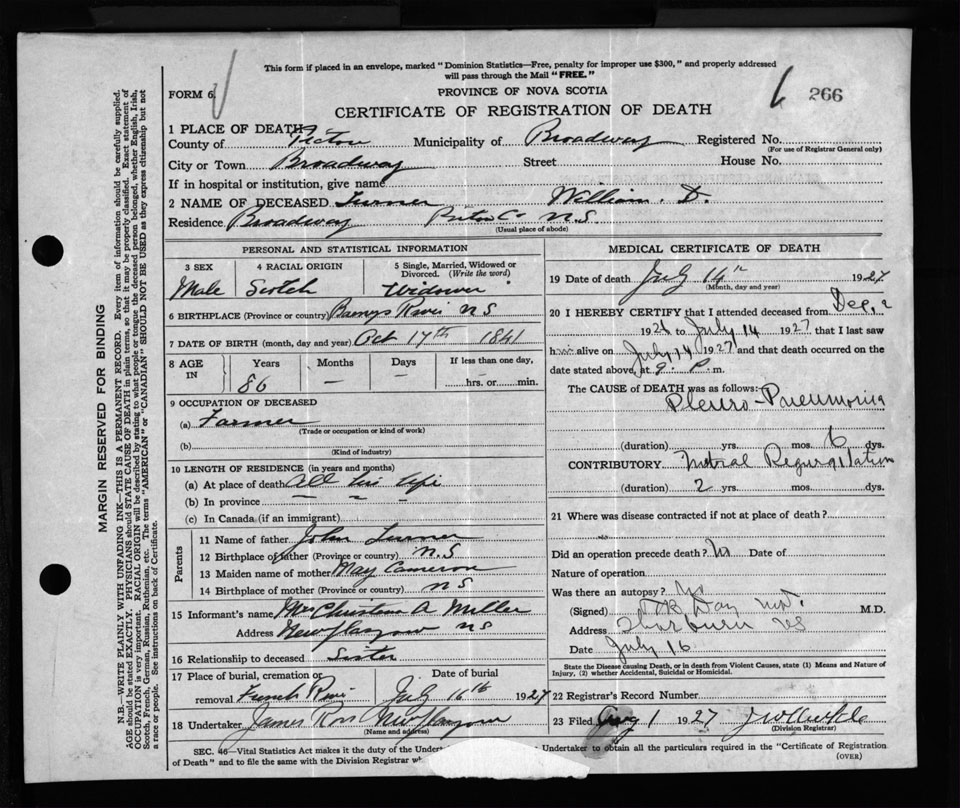 This form if placed in an envelope, marked "Dominion Statistics—Free, penalty for improper use $300," and properly addressed
will pass through the Mail "FREE."
FORM 6
PROVINCE OF NOVA SCOTIA
266
CERTIFICATE OF REGISTRATION OF DEATH
1 PLACE OF DEATH
County of Pictou Municipality of Broadway Registered No.
(For use of Registrar General only)
City or Town Broadway Street House No.
If in hospital or institution, give name
2 NAME OF DECEASED Turner William. D.
Residence Broadway Pictou Co N.S.
(Usual place of abode)
PERSONAL AND STATISTICAL INFORMATION
3 SEX 4 RACIAL ORIGIN 5 Single, Married, Widowed or
Divorced. (Write the word)
Male Scotch Widower
6 BIRTHPLACE (Province or country) Barneys River N S
7 DATE OF BIRTH (month, day and year) Oct 17th 1841
8 AGE IN Years Months Days If less than one day,
86 — — hrs. or min.
9 OCCUPATION OF DECEASED
(a) Farmer
(Trade or occupation or kind of work)
(b)
(Kind of industry)
10 LENGTH OF RESIDENCE (in years and months)
(a) At place of death All his life
(b) In province
(c) In Canada (if an immigrant)
Parents
11 Name of father John Turner
12 Birthplace of father (Province or country) N.S
13 Maiden name of mother May Cameron
14 Birthplace of mother (Province or country) N S
15 Informant's name Mrs Christena A. Miller
Address New Glasgow N S
16 Relationship to deceased Sister
17 Place of burial, cremation or Date of burial
removal French River July 16th 1927
18 Undertaker James Ross New Glasgow
(Name and address)
MEDICAL CERTIFICATE OF DEATH
19 Date of death July 14th 1927
(Month, day and year)
20 I HEREBY CERTIFY that I attended deceased from Dec. 2
1926 to July 14 1927 that I last saw
him alive on July 14 1927 and that death occurred on the
date stated above, at 9 P. m.
The CAUSE of DEATH was as follows:
Pleuro-Pneumonia
(duration) yrs. mos. 6 dys.
CONTRIBUTORY Mitral Regurgitation
(duration) 2 yrs. mos. dys.
21 Where was disease contracted if not at place of death?
Did an operation precede death? No Date of
Nature of operation
Was there an autopsy? No
(Signed) Day M.D. M.D.
Address Thorburn NS
Date July 16
State the Disease causing Death, or in death from Violent Causes, state (1) Means and Nature of
Injury, (2) whether Accidental, Suicidal or Homicidal.
22 Registrar's Record Number
23 Filed Aug 1 1927
(Division Registrar)
SEC. 46—Vital Statistics Act makes it the duty of the Undertaker to obtain all the particulars required in the "Certificate of Registration
of Death" and to file the same with the Division Registrar
(OVER)
MARGIN RESERVED FOR BINDING
N.B.—WRITE PLAINLY WITH UNFADING INK—THIS IS A PERMANENT RECORD. Every item of information should be carefully supplied.
AGE should be stated EXACTLY. PHYSICIANS should STATE CAUSE OF DEATH in plain terms, so that it may be properly classified. Exact statement of
OCCUPATION is very important. RACIAL ORIGIN will be described by stating to what people or tongue the deceased person belonged, whether English, Irish,
Scotch, French, German, Russian, Ruthenian, etc. The terms "AMERICAN" or "CANADIAN" SHOULD NOT BE USED as they express citizenship but not
a race or people. See instructions on back of Certificate.